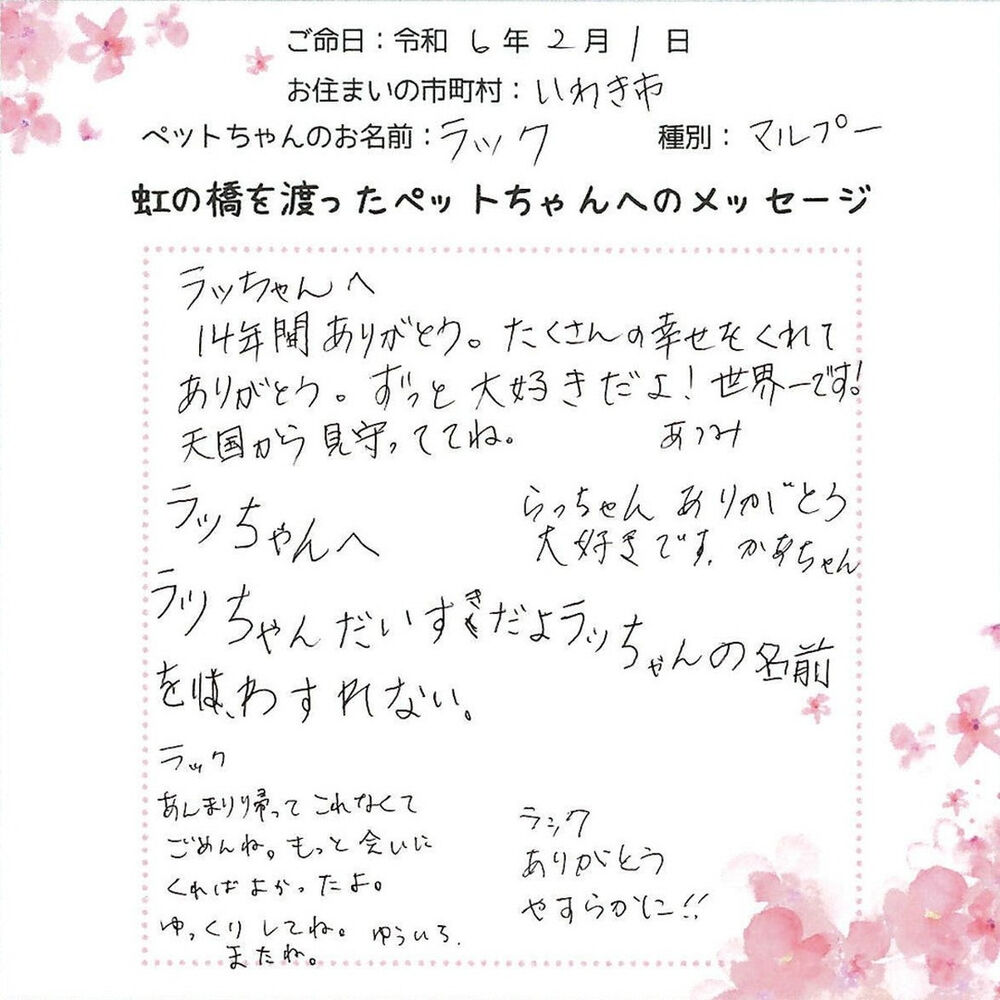 ご命日：令和 6 年 2 月 1 日
お住まいの市町村：いわき市
ペットちゃんのお名前：ラック 種別：マルプー
虹の橋を渡ったペットちゃんへのメッセージ
ラッちゃんへ
14年間ありがとう。たくさんの幸せをくれて
ありがとう。ずっと大好きだよ！世界一です！
天国から見守っててね。 あつみ
らっちゃん ありがとう
大好きです。かあちゃん
ラッちゃんへ
ラッちゃんだいすきだよラッちゃんの名前
を わすれない。
ラック
あんまり帰ってこれなくて
ごめんね。もっと会いに
くればよかったよ。
ゆっくりしてね。
またね。
ラック
ありがとう
やすらかに!!